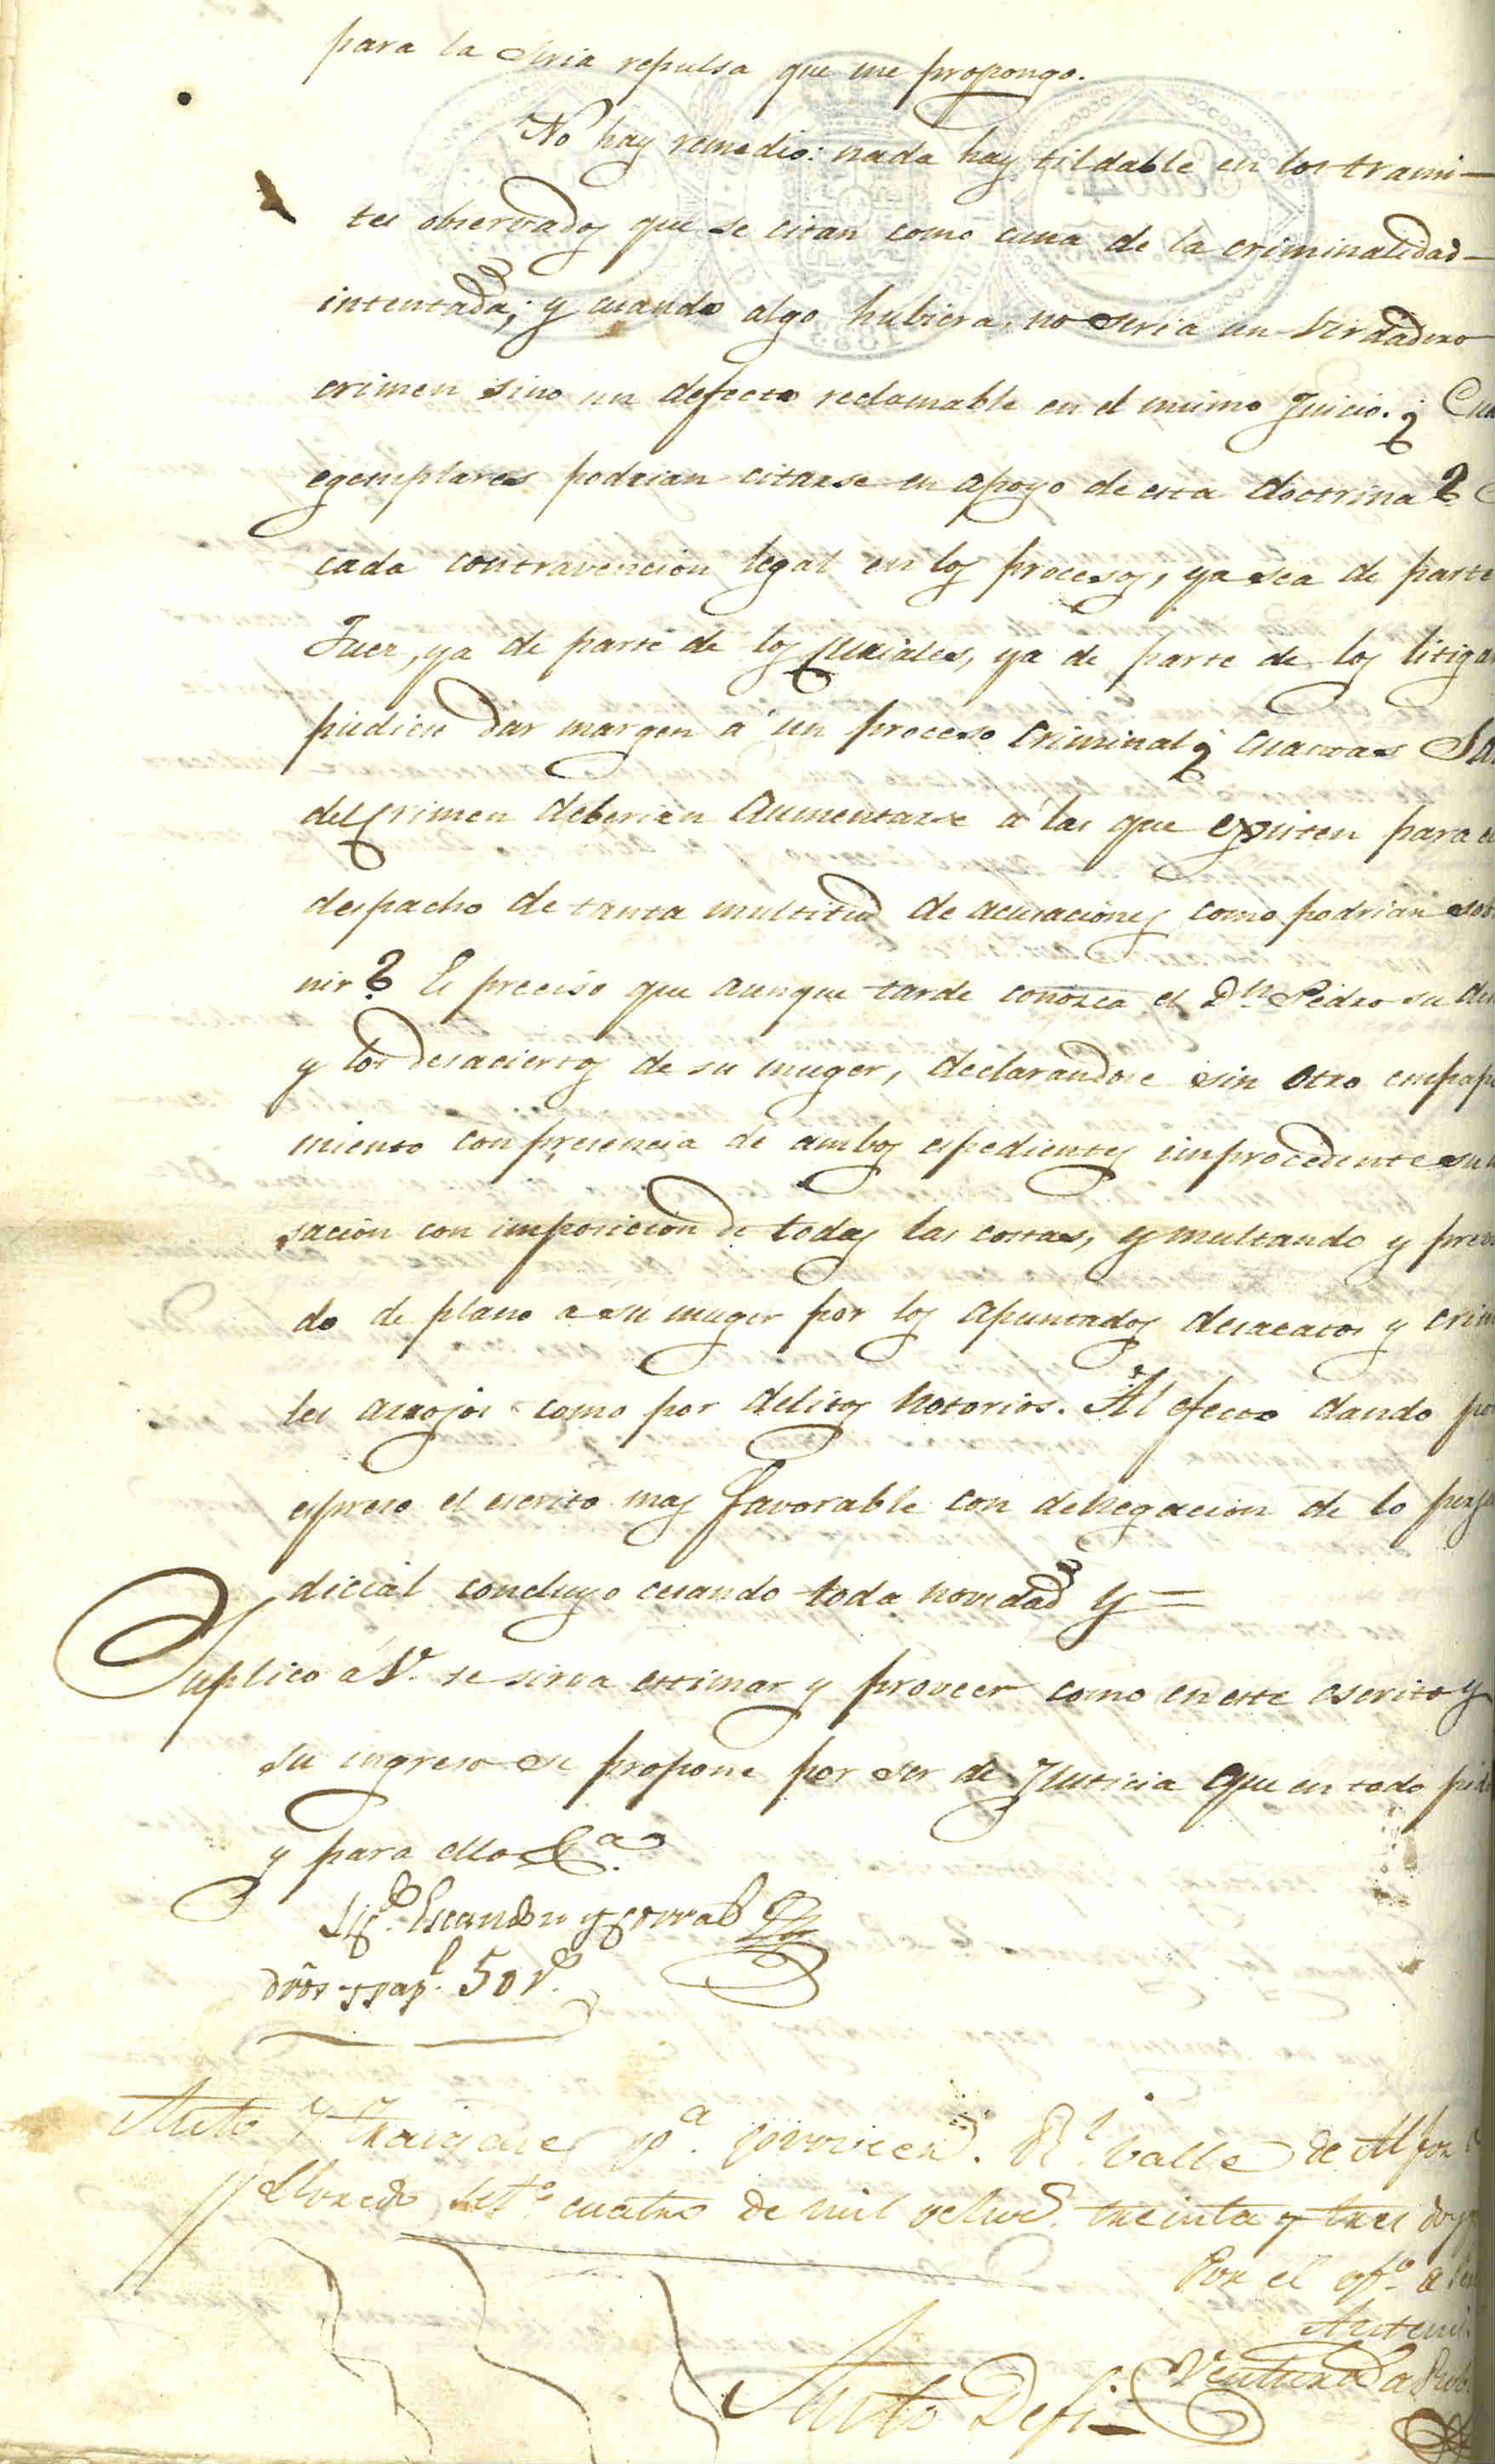 para la seria repulsa que me propongo.
No hay remedio: nada hay tildable en los trami-
tes observados que se citan como cuna de la criminalidad
intentada; y cuando algo hubiera, no seria un verdadero
crimen sino un defecto reclamable en el mismo Juicio. ¿
egemplares podrian citarse en apoyo de esta doctrina?
cada contravencion legal en los procesos, ya sea de parte
Juez, ya de parte de los curiales, ya de parte de los litiga
pudiese dar margen a un proceso criminal ¿ cuantas Sa
del Crimen deberian aumentarse á las que existen para e
despacho de tanta multitud de acusaciones como podrian so
nir? Es preciso que aunque tarde conozca el Dn. Pedro su
y los desaciertos de su muger, declarandose sin otro empape
miento con presencia de ambos espedientes improcedente su
sacion con imposicion de todas las costas, y multando y
do de plano a su muger por los apuntados desacatos y crim
les arrojos como por delitos notorios. Al efecto dando po
espreso el escrito mas favorable con denegacion de lo perju
dicial concluyo cesando toda novedad y =
Suplico á V. se sirva estimar y proveer como en este escrito y
su ingreso se propone por ser de Justicia que en todo pido
y para ello &a.
Licdo. Escandon y Corral
dros. y papl. 50 rs.
Auto y traigase pa. proveer. Rl. Valle de
cuatro de mil ochoc. treinta y tres doy
Por el ofo.
Antemi.
Ventura
Auto Defi-